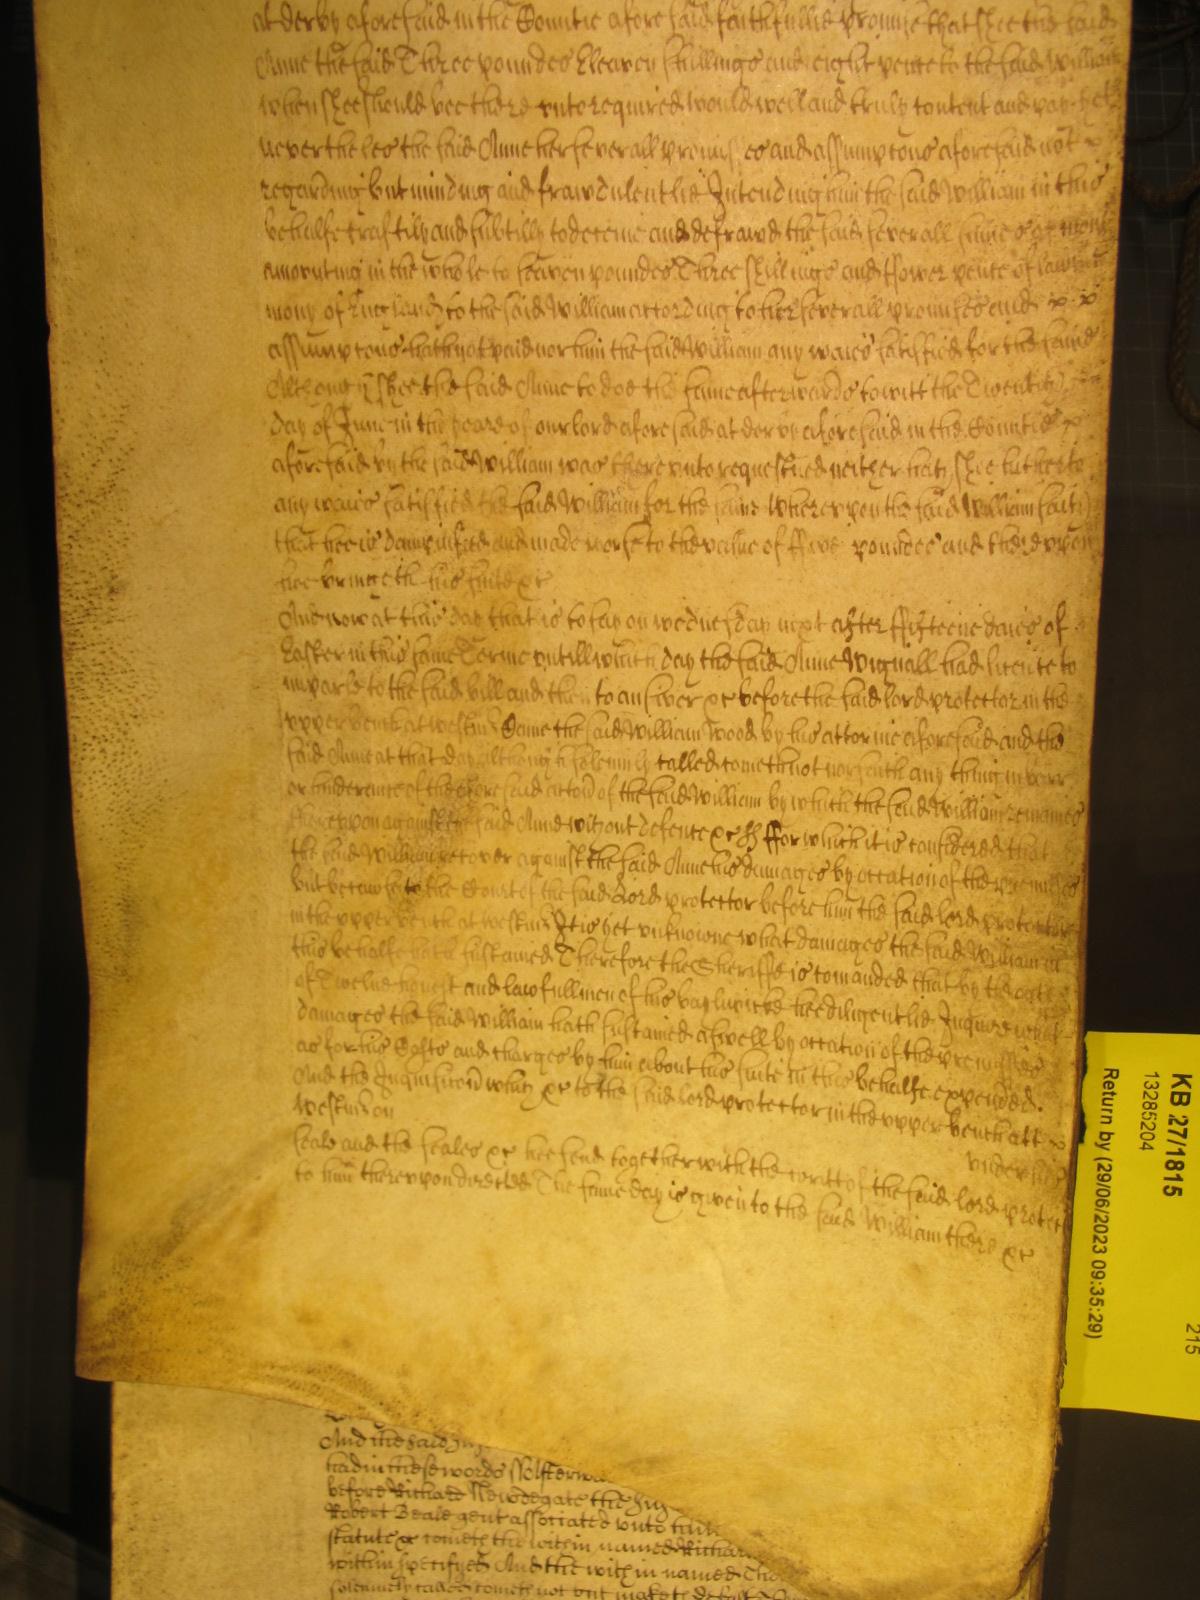 at derby aforesaid in the Countie aforesaid faithfullie promise that shee the said
Anne the said Three poundes Eleaven shillings and eight pence to the said William
when shee should bee there vnto required would well and truly content and pay yet
neverthelesse the said Anne her severall promisses and assumptons aforesaid not
regarding but minding and frawdulentlie Intending him the said William in this
behalfe craftily and subtilly to deceive and defrawd the said severall summes of mony
amounting in the whole to seaven poundes Three shillings and ffower pence of lawfull
mony of England to the said William according to her severall promisses and
assumptons hath not paid nor him the said William any waies satisfied for the same
Although shee the said Anne to doe the same afterwards to witt the Twentith
day of June in the yeare of our lord aforesaid at derby aforesaid in the Countie
aforesaid by the said William was therevnto requested neither hath shee hitherto
any waies satisfied the said William for the same Wherevpon the said William saith
that hee is dampnifyed and made worse to the value of ffive poundes and therevpon
hee bringeth his suite &c
And now at this day that is to say on wednesday next after ffifteene daies of
Easter in this same Terme vntill which day the said Anne Wignall had licence to
imparle to the said bill and then to answer &c before the said lord protector in the
vpper bench at Westmr Came the said William Wood by his attornie aforesaid and the
said Anne at that day although solemnly called cometh not nor saith any thing in barr
or hinderance of the aforesaid accon of the said William by which the said William remaines
therevpon against the said Anne without defence &c ffor which it is considered that
the said William recover against the said Anne his damages by occation of the premisses
but because to the Court of the said Lord protector before him the said lord protector
in the vpper bench at Westmr It is yet vnknowne what damages the said William in
this behalfe hath sustained Therefore the Sheriffe is comanded that by the oath
of Twelve honest and lawfull men of his baylwicke hee diligentlie Inquire what
damages the said William hath sustained aswell by occation of the premisses
as for his Costs and charges by him about his suite in this behalfe expended.
And the Inquisicon which &c to the said lord protector in the vpper bench att
Westmr on under his
seale and the seales &c hee send together with the writt of the said lord protector
to him therevpon directed The same day is given to the said William there &c
And the said
had in these words Afterw
before Richard Newdegate the
Robert Beale gent associated vnto
statute &c cometh the within named Richard
within specifyed And the within named
solemnely called cometh not but maketh default
KB 27/1815
13285204
Return by (29/06/2023 09:35:29)
215